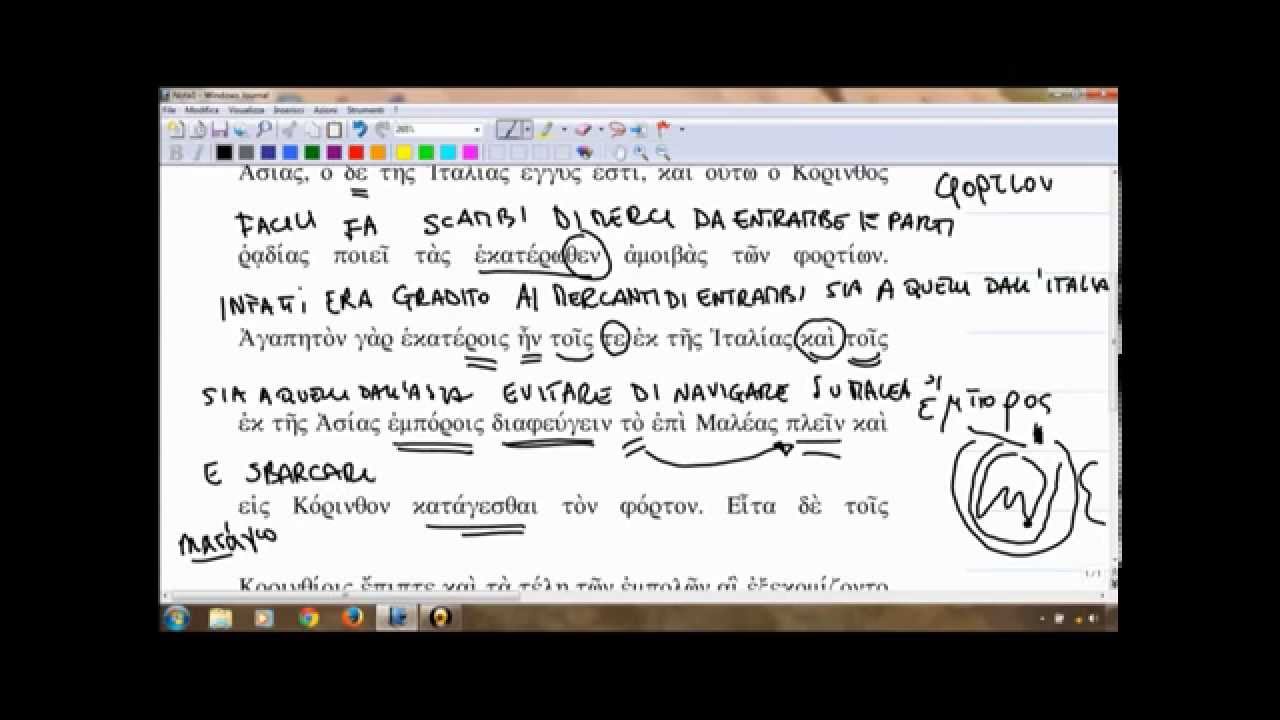 Note1 - Windows Journal
File Modifica Visualizza Inserisci Azioni Strumenti ?
200%
Ἀσίας, ὁ δὲ τῆς Ἰταλίας ἐγγύς ἐστι, καὶ οὕτω ὁ Κόρινθος
φορτιον
FACILI FA SCAMBI DI MERCI DA ENTRAMBE LE PARTI
ῥᾳδίας ποιεῖ τὰς ἑκατέρωθεν ἀμοιβὰς τῶν φορτίων.
INFATTI ERA GRADITO AI MERCANTI DI ENTRAMBI SIA A QUELLI DALL'ITALIA
Ἀγαπητὸν γὰρ ἑκατέροις ἦν τοῖς τε ἐκ τῆς Ἰταλίας καὶ τοῖς
SIA A QUELLI DALL'ASIA EVITARE DI NAVIGARE SU MALEA
ἔμπορος
ἐκ τῆς Ἀσίας ἐμπόροις διαφεύγειν τὸ ἐπὶ Μαλέας πλεῖν καὶ
E SBARCARE
εἰς Κόρινθον κατάγεσθαι τὸν φόρτον. Εἶτα δὲ τοῖς
κατάγω
Κορινθίοις ἔπιπτε καὶ τὰ τέλη τῶν ἐμπολῶν αἳ ἐξεκομίζοντο
1/1